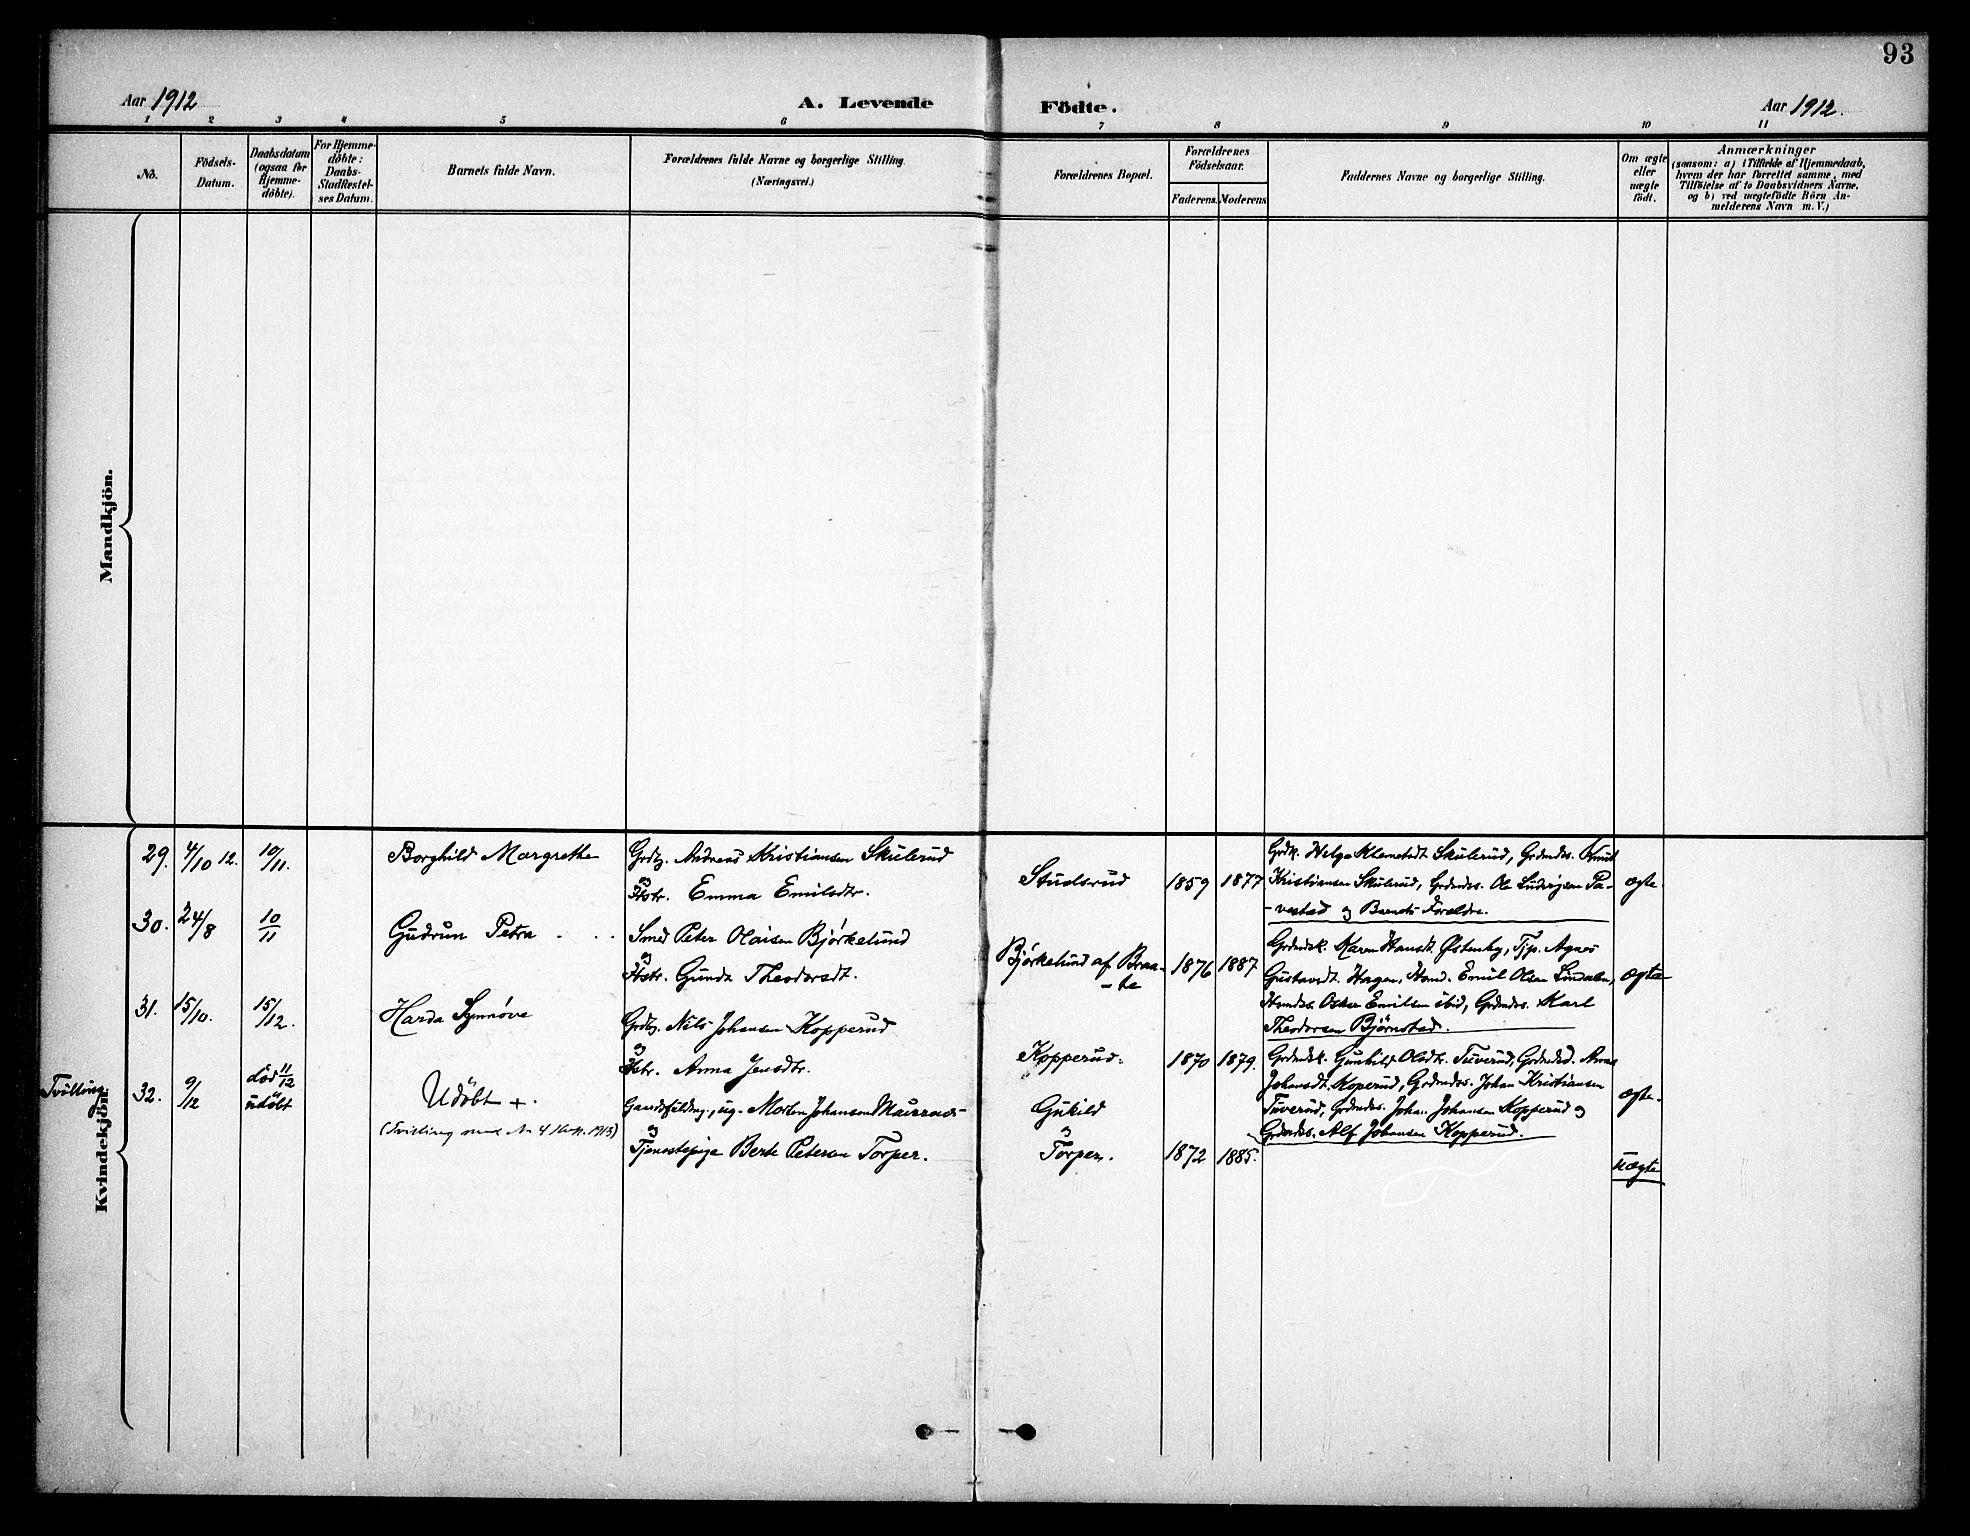 93
Aar 1912
A. Levende
Födte.
Aar 1912.
1 2 3 4 5 6 7 8 9 10 11
No.
Födsels-
Datum.
Daabsdatum
(ogsaa for
Hjemme-
döbte).
For Hjemme-
döbte:
Daabs-
Stadfæstel-
ses Datum.
Barnets fulde Navn.
Forældrenes fulde Navne og borgerlige Stilling.
(Næringsvei.)
Forældrenes Bopæl.
Forældrenes
Födselsaar.
Faderens.
Moderens
Faddernes Navne og borgerlige Stilling.
Om ægte
eller
uægte
födt.
Anmærkninger
(saasom: a) i Tilfælde af Hjemmedaab,
hvem der har forrettet samme, med
Tilföielse af to Daabsvidners Navne.
og b) ved uægtefödte Börn An-
melderens Navn m. V.)
Mandkjön.
Kvindekjön.
29. 4/10 12. 10/11. Borghild Margrethe
Grdbr. Andreas Kristiansen Skulerud
og
Hstr. Emma Emilsdtr.
Studsrud 1859 1877
Grdk. Helga Klemetsdt Skulerud, Grdmds. Knut
Kristiansen Skulerud, Grdmds. Ole Ludvigsen Pa-
-vestad og Barnets Forældre.
ægte.
30. 24/8 10/11 Gudrun Petra
Smed Peter Olaisen Bjørkelund
og
Hstr. Gunda Theodorsdt.
Bjørkelund af Braa-
-te
1876 1887
Grdmdsk. Maren Hansdt. Østenby, Tjp. Agnes
Gustavsdt. Hagen, Hsmd. Emil Olsen
Hsmds. Oskar Emilsen ibid, Grdmds. Karl
Theodorsen Bjørnstad.
ægte
31. 15/10. 15/12. Harda Synnøve
Grdbr. Nils Johansen Kopperud
og
Hstr. Anna Jensdtr.
Kopperud. 1870 1879.
Grdmdsk. Gunhild Olsdtr. Tuverud, Grdmdsd. Anna
Johansdt. Koperud, Grdmds. Johan Kristiansen
Tuverud, Grdmds. Johan Johansen Kopperud og
Grdmds. Alf Johansen Kopperud.
ægte.
Tvilling.
32. 9/12 död 11/12
udöbt
Udöbt +.
(Tvilling med No 4 1913)
ug. Morten Johansen
og
Tjenestepige Berte Petersen Torper.
Gukild
og
Torper. 1872 1885.
uægte